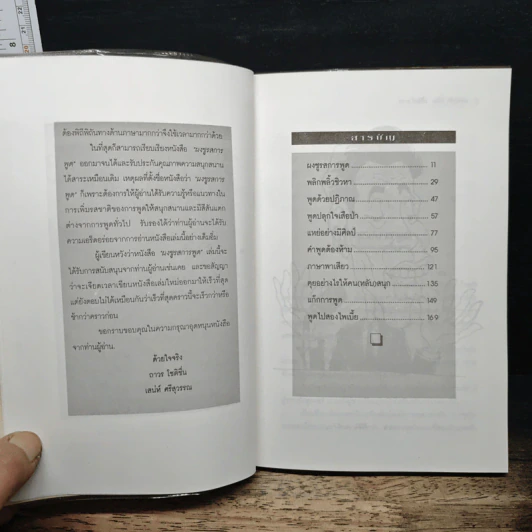 ต้องพิถีพิถันทางด้านภาษามากกว่าจึงใช้เวลามากกว่าด้วย
ในที่สุดก็สามารถเรียบเรียงหนังสือ "ผงชูรสการ
พูด" ออกมาจนได้และรับประกันคุณภาพความสนุกสนาน
ได้สาระเหมือนเดิม เหตุผลที่ตั้งชื่อหนังสือว่า "ผงชูรสการ
พูด" ก็เพราะต้องการให้ผู้อ่านได้รับความรู้หรือแนวทางใน
การเพิ่มรสชาติของการพูดให้สนุกสนานและมีสีสันแตก
ต่างจากการพูดทั่วไป รับรองได้ว่าท่านผู้อ่านจะได้รับ
ความเอร็ดอร่อยจากการอ่านหนังสือเล่มนี้อย่างเต็มอิ่ม
ผู้เขียนหวังว่าหนังสือ "ผงชูรสการพูด" เล่มนี้จะ
ได้รับการสนับสนุนจากท่านผู้อ่านเช่นเคย และขอสัญญา
ว่าจะเจียดเวลาเขียนหนังสือเล่มใหม่ออกมาให้เร็วที่สุด
แต่ยังตอบไม่ได้เหมือนกันว่าเร็วที่สุดคราวนี้จะเร็วกว่าหรือ
ช้ากว่าคราวก่อน
ขอกราบขอบคุณในความกรุณาอุดหนุนหนังสือ
จากท่านผู้อ่าน.
ด้วยใจจริง
ถาวร โชติชื่น
เสน่ห์ ศรีสุวรรณ
สารบัญ
ผงชูรสการพูด 11
พลิกพลิ้วชิวหา 29
พูดด้วยปฏิภาณ 47
พูดปลุกใจเสือป่า 57
แหย่อย่างมีศิลป์ 77
คำพูดต้องห้าม 95
ภาษาพาเสียว 121
คุยอย่างไรให้คน(หลับ)สนุก 135
แก๊กการพูด 149
พูดไปสองไพเบี้ย 169